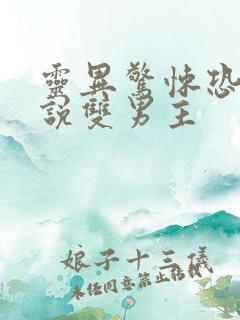 靈異驚悚恐
說雙男主
娘子十三儀
未經同意禁止轉載